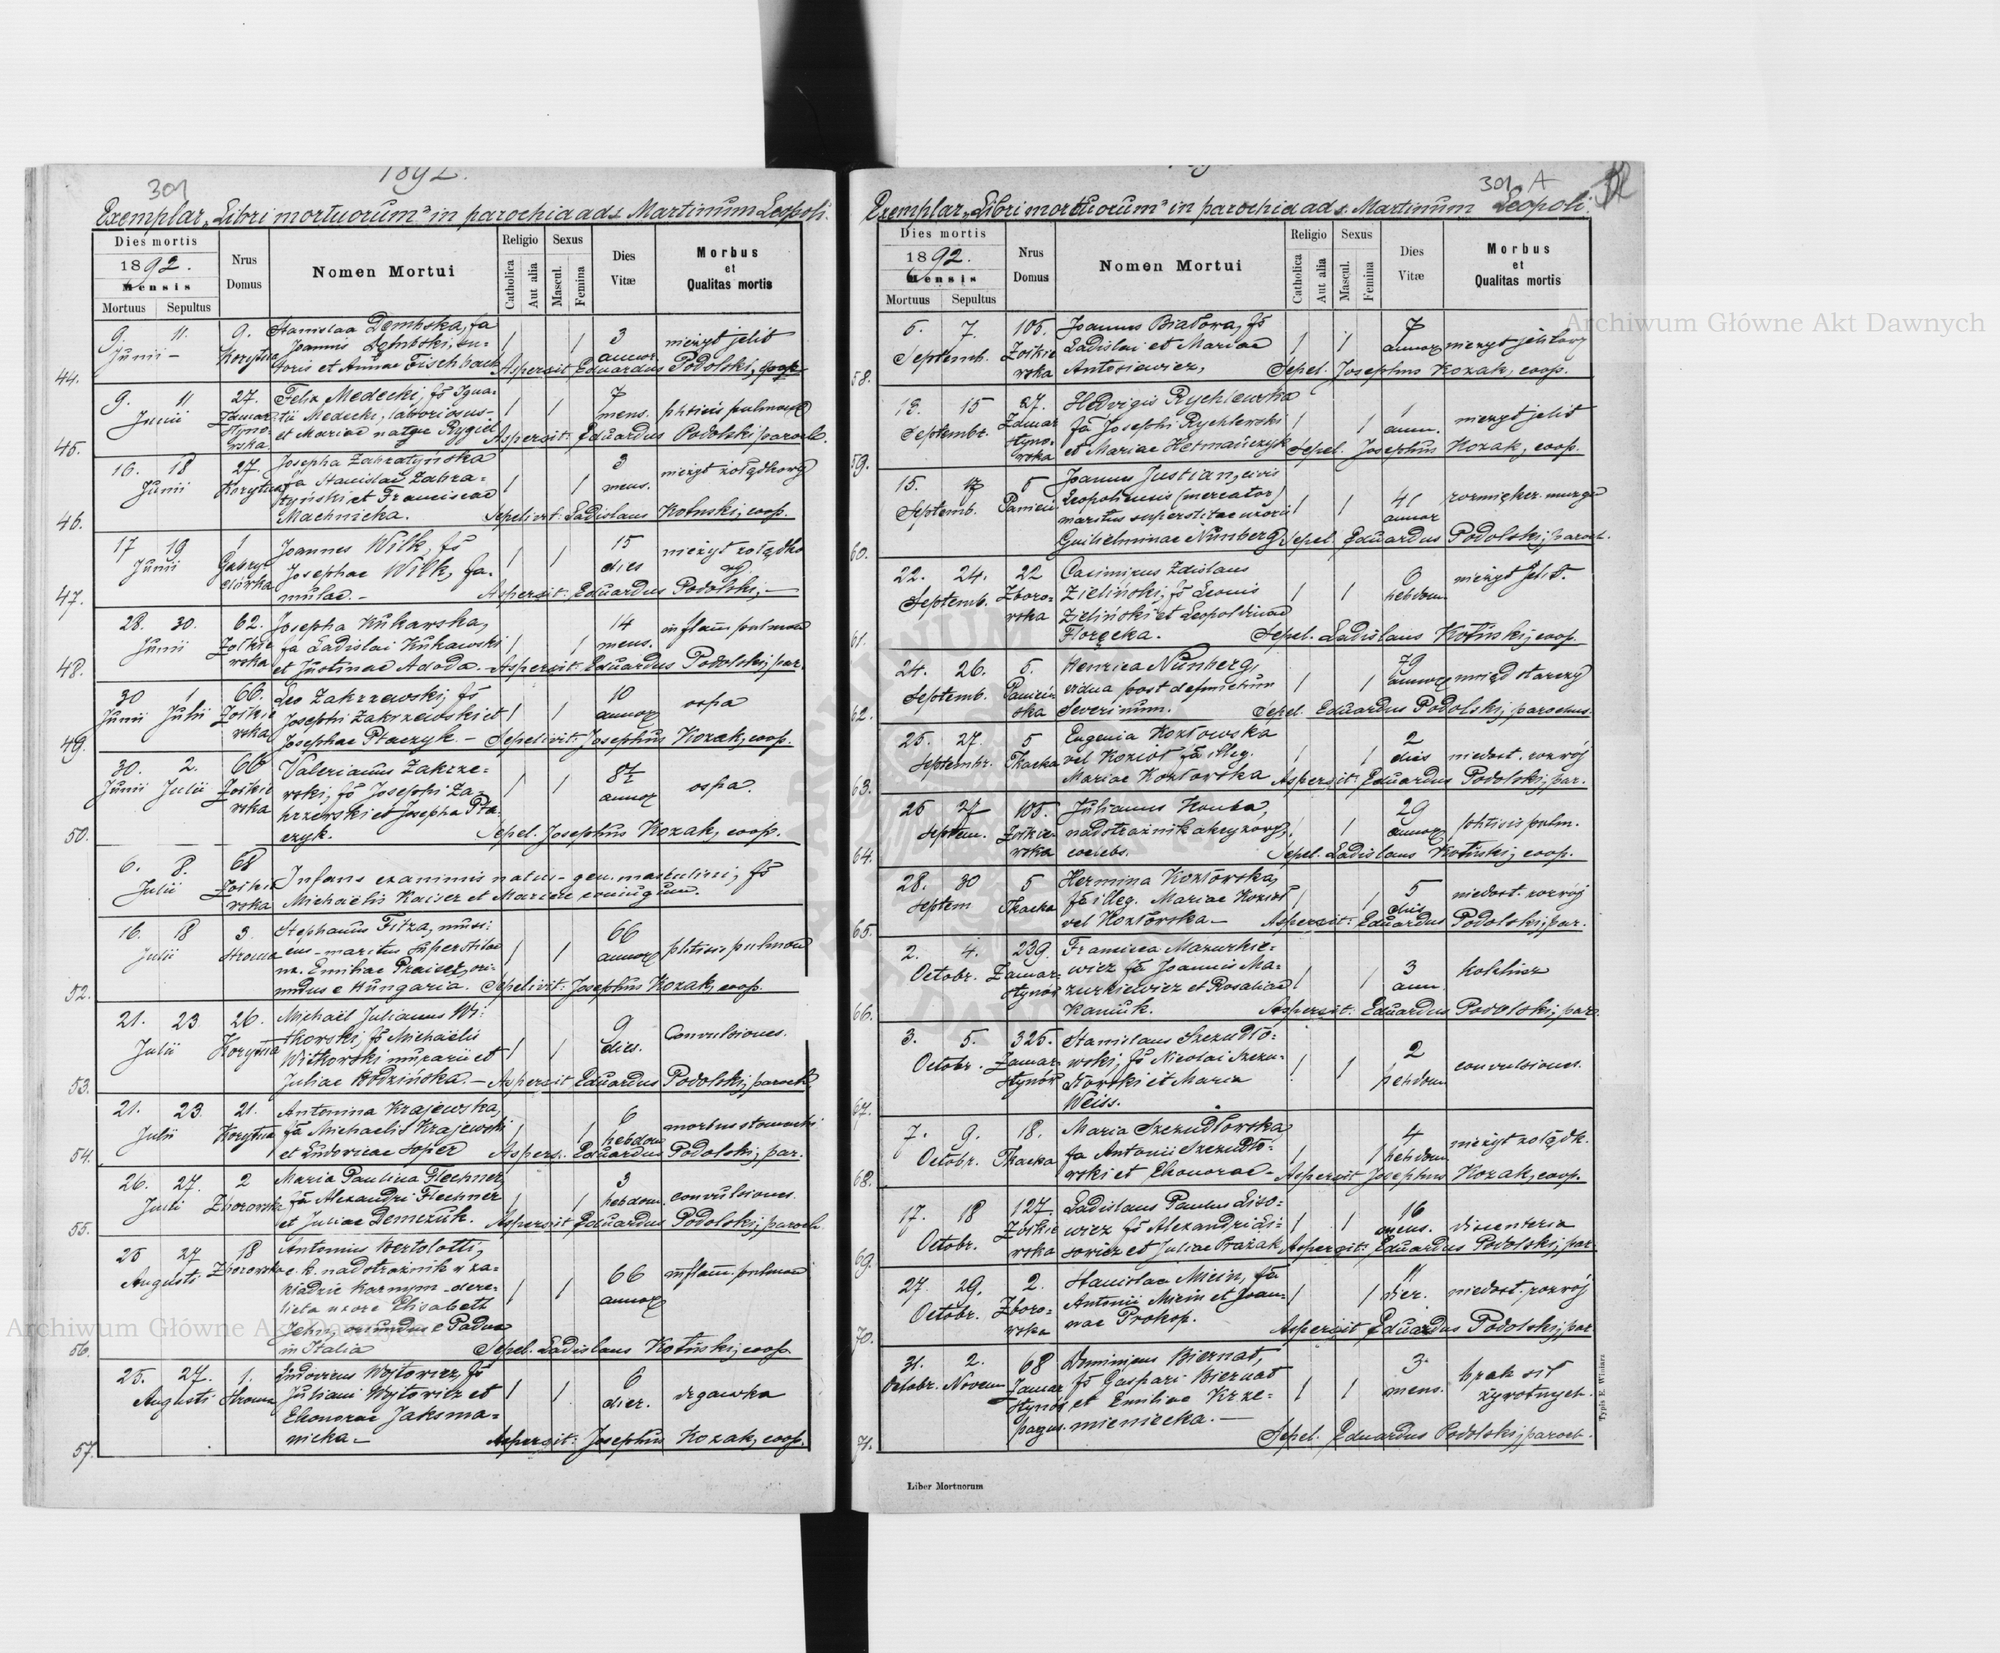 1892.
301
Exemplar „Libri mortuorum" in parochia ad s. Martinum Leopoli.
Dies mortis
1892.
Mensis
Mortuus Sepultus
Nrus Domus
Nomen Mortui
Religio
Catholica
Aut alia
Sexus
Mascul.
Femina
Dies Vitæ
Morbus et Qualitas mortis
44.
9. 11. 9. Stanislaa Dembska, fa 3
Junii — Korytna Joannis Dembski, su- 1 1 annor. nieżyt jelit
toris et Annae Fischbach Aspersit Eduardus Podolski,
45.
9. 11 27. Felix Medecki, fs Igna- 7
Junii tii Medecki, laboriosus- 1 1 mens. phtisis pulmon
et Mariae natae Rygiel Aspersit: Eduardus Podolski paroch.
46.
16. 18 27. Josepha Zabratyńska 3
Junii Korytna fa Stanislai Zabra- 1 1 mens. nieżyt żołądkowy
tyński et Franciscae
Machnicka. Sepelivit: Ladislaus Kotuski, coop.
47.
17 19 1 Joannes Wilk, fs 15
Junii Josephae Wilk, fa- 1 1 dies nieżyt żołądko
mulae. — Aspersit: Eduardus Podolski, —
48.
28. 30. 62. Josepha Kukawska, 14
Junii Żółkie fa Ladislai Kukawski 1 1 mens. inflam pulmon
wska et Justinae Adoda. — Aspersit: Eduardus Podolski, par.
49.
30 1 66. Leo Zakrzewski, fs 10
Junii Julii Żółkie Josephi Zakrzewski et 1 1 annor ospa
wska Josephae Ptaczyk. — Sepelivit: Josephus Kozak, coop.
50.
30. 2. 66 Valerianus Zakrze- 8½
Junii Julii Żółkie wski, fs Josephi Za- 1 1 annor ospa.
wska krzewski et Josepha Pta-
czyk. Sepel. Josephus Kozak, coop.
6. 8. 68
Julii Żółkie Infans exanimis natus - gen. masculini, fs
wska Michaëlis Kaiser et Mariae coniugum.
52.
16. 18 3. Stephanus Fitza, musi- 66
Julii cus - maritus superstitae 1 1 annor phtisis pulmon
ux. Emiliae Praiser, ori-
undus e Hungaria. Sepelivit: Josephus Kozak, coop.
53.
21. 23 26. Michaël Julianus Wi- 9
Julii Korytna tkowski, fs Michaëlis 1 1 dies. Convulsiones.
Witkowski murarii et
Juliae Rodzińska. — Aspersit Eduardus Podolski, paroch
54.
21. 23 21. Antonina Krajewska, 6
Julii Korytna fa Michaelis Krajewski 1 1 hebdom morbus stomachi
et Ludovicae Soper Aspers.: Eduardus Podolski, par.
55.
26. 27. 2 Maria Paulina Flechner, 3
Julii Zborowska fa Alexandri Flechner 1 1 hebdom. convulsiones.
et Juliae Demczuk. Aspersit Eduardus Podolski, paroch
56.
25 27 18 Antonius Bertolotti, 66
Augusti Zborowska c. k. nadstrażnik w za- 1 1 annor inflam. pulmon
kładzie karnym - dere-
licta uxore Elisabeth
Jehn, oriundus e Padua
in Italia Sepel. Ladislaus Kotuski, coop.
57.
25. 27. 1. Ludovicus Wojtowicz, fs 6
Augusti Juliani Wojtowicz et 1 1 dier. drgawka
Eleonorae Jaksma-
nicka — Aspersit: Josephus Kozak, coop.
301 A
Exemplar „Libri mortuorum" in parochia ad s. Martinum Leopoli.
Dies mortis
1892.
Mensis
Mortuus Sepultus
Nrus Domus
Nomen Mortui
Religio
Catholica
Aut alia
Sexus
Mascul.
Femina
Dies Vitæ
Morbus et Qualitas mortis
58.
7. 105. Joannes Białowa, fs 7
Septemb. Żółkie Ladislai et Mariae 1 1 annor nieżyt jelitowy
wska Antosiewicz, Sepel. Josephus Kozak, coop.
59.
13. 15 27. Hedvigis Rychlewska 1
Septembr. fa Josephi Rychlewski 1 1 ann. nieżyt jelit
et Mariae Hermańczyk Sepel. Josephus Kozak, coop.
60.
15. 17 5 Joannes Justian, civis 41
Septemb. Leopoliensis (mercator) 1 1 annor rozmiękcz. mózgu
maritus superstitae uxoris
Guilielminae Nünberg Sepel. Eduardus Podolski, paroch.
61.
22. 24. 22 Casimirus Zdislaus 6
Septemb. Zboro- Zieliński, fs Leonis 1 1 hebdom nieżyt jelit.
wska Zieliński et Leopoldinae
Florecka. Sepel. Ladislaus Kotuski, coop.
62.
24. 26. 5. Henrica Nünberg, 79
Septemb. vidua post defunctum 1 1 annor uwiąd starczy
Severinum. Sepel. Eduardus Podolski, parochus
63.
25. 27. 5 Eugenia Kozłowska 2
Septembr. Tkacka vel Kozioł fa illeg. 1 1 dies niedost. rozwój
Mariae Kozłowska Aspersit: Eduardus Podolski, par.
64.
25 27 105. Julianus Kouba, 29
Septem. Żółkie- nadstrażnik akcyzowy, 1 1 annor phtisis pulm.
wska coelebs. Sepel. Ladislaus Kotuski, coop.
65.
28. 30 5 Hermina Kozłowska, 5
Septem Tkacka fa illeg. Mariae Kozioł 1 1 dies niedost. rozwój
vel Kozłowska — Aspersit: Eduardus Podolski, par.
66.
2. 4. 239. Francisca Mazurkie- 3
Octobr. Zamar- wicz fa Joannis Ma- 1 1 ann. koklusz
stynów zurkiewicz et Rosaliae
Kaniuk. Aspersit: Eduardus Podolski, par.
67.
3. 5. 325. Stanislaus Szczudło- 2
Octobr. Zamar- wski, fs Nicolai Szczu- 1 1 hebdom convulsiones.
stynów dłowski et Maria
Weiss.
68.
7. 9. 18. Maria Szczudłowska 4
Octobr. Tkacka fa Antonii Szczudło- 1 1 hebdom nieżyt żołądk.
wski et Eleonorae — Aspersit Josephus Kozak, coop.
69.
17. 18 127. Ladislaus Paulus Liso- 16
Octobr. Żółkie wicz fs Alexandri Li- 1 1 mens. disenteria
wska sowicz et Juliae Prażak Aspersit: Eduardus Podolski, par.
70.
27. 29. 2. Stanislaa Micin, fa 11
Octobr. Zboro- Antonii Micin et Joan- 1 1 dier. niedost. rozwój
wska nae Prokop. Aspersit Eduardus Podolski, par
71.
31. 2. 68 Dominicus Biernat, 3.
Octobr. Novem Zamar fs Gaspari Biernat 1 1 mens. brak sił
stynów et Emiliae Krze- żywotnych.
pagus. mieniecka. —
Sepel. Eduardus Podolski, paroch.
Liber Mortuorum
Typis E. Winiarz
Archiwum Główne Akt Dawnych
Archiwum Główne Akt Dawnych